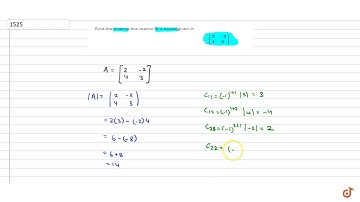 1525
Find the inverse the matrix (if it exists) given in
[2 -2
4 3]
A = [2 -2
4 3]
|A| = |2 -2
4 3|
= 2(3) - (-2)4
= 6 - (-8)
= 6+8
= 14
C₁₁ = (-1)¹⁺¹ |3| = 3
C₁₂ = (-1)¹⁺² |4| = -4
C₂₁ = (-1)²⁺¹ |-2| = 2
C₂₂ = (-